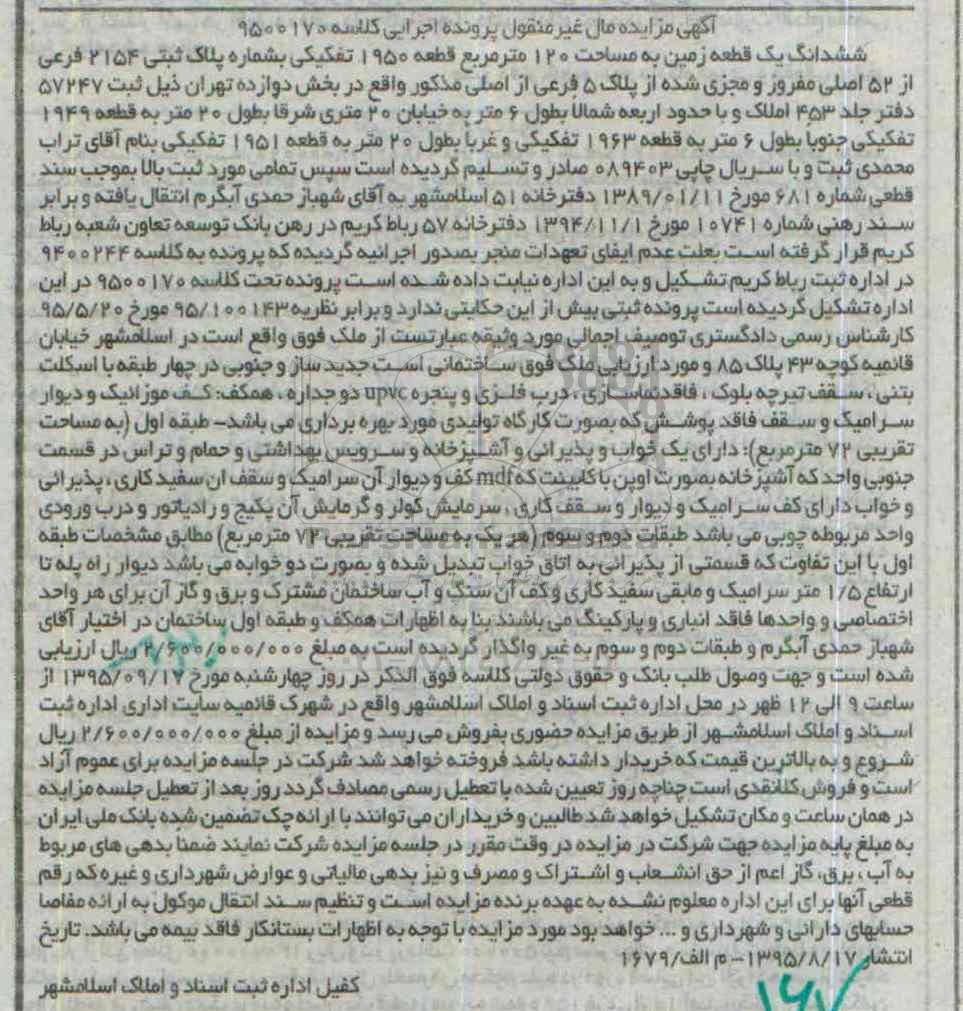 آگهی مزایده مال غیر منقول پرونده اجرایی کلاسه ۹۵۰۰۱۷۰
ششدانگ یک قطعه زمین به مساحت ۱۲۰ مترمربع قطعه ۱۹۵۰ تفکیکی بشماره پلاک ثبتی ۲۱۵۴ فرعی
از ۵۲ اصلی مفروز و مجزی شده از پلاک ۵ فرعی از اصلی مذکور واقع در بخش دوازده تهران ذیل ثبت ۵۷۲۴۷
دفتر جلد ۴۵۳ املاک و با حدود اربعه شمالا بطول ۶ متر به خیابان ۲۰ متری شرقا بطول ۲۰ متر به قطعه ۱۹۴۹
تفکیکی جنوبا بطول ۶ متر به قطعه ۱۹۶۳ تفکیکی و غربا بطول ۲۰ متر به قطعه ۱۹۵۱ تفکیکی بنام آقای تراب
محمدی ثبت و با سریال چاپی ۰۸۹۴۰۳ صادر و تسلیم گردیده است سپس تمامی مورد ثبت بالا بموجب سند
قطعی شماره ۶۸۱ مورخ ۱۳۸۹/۰۱/۱۱ دفترخانه ۵۱ اسلامشهر به آقای شهباز حمدی آبگرم انتقال یافته و برابر
سند رهنی شماره ۱۰۷۴۱ مورخ ۱۳۹۴/۱۱/۱ دفترخانه ۵۷ رباط کریم در رهن بانک توسعه تعاون شعبه رباط
کریم قرار گرفته است بعلت عدم ایفای تعهدات منجر بصدور اجرائیه گردیده که پرونده به کلاسه ۹۴۰۰۲۴۴
در اداره ثبت رباط کریم تشکیل و به این اداره نیابت داده شده است پرونده تحت کلاسه ۹۵۰۰۱۷۰ در این
اداره تشکیل گردیده است پرونده ثبتی بیش از این حکایتی ندارد و برابر نظریه ۹۵/۱۰۰۱۴۳ مورخ ۹۵/۵/۲۰
کارشناس رسمی دادگستری توصیف اجمالی مورد وثیقه عبارتست از ملک فوق واقع است در اسلامشهر خیابان
قائمیه کوچه ۴۳ پلاک ۸۵ و مورد ارزیابی ملک فوق ساختمانی است جدید ساز و جنوبی در چهار طبقه با اسکلت
بتنی ، سقف تیرچه بلوک ، فاقدنماسازی ، درب فلزی و پنجره upvc دو جداره ، همکف: کف موزائیک و دیوار
سرامیک و سقف فاقد پوشش که بصورت کارگاه تولیدی مورد بهره برداری می باشد– طبقه اول (به مساحت
تقریبی ۷۲ مترمربع): دارای یک خواب و پذیرائی و آشپزخانه و سرویس بهداشتی و حمام و تراس در قسمت
جنوبی واحد که آشپزخانه بصورت اوپن با کابینت که mdf کف و دیوار آن سرامیک و سقف آن سفید کاری ، پذیرائی
و خواب دارای کف سرامیک و دیوار و سقف کاری ، سرمایش کولر و گرمایش آن پکیج و رادیاتور و درب ورودی
واحد مربوطه چوبی می باشد طبقات دوم و سوم (هر یک به مساحت تقریبی ۷۲ مترمربع) مطابق مشخصات طبقه
اول با این تفاوت که قسمتی از پذیرائی به اتاق خواب تبدیل شده و بصورت دو خوابه می باشد دیوار راه پله تا
ارتفاع ۱/۵ متر سرامیک و مابقی سفید کاری و کف آن سنگ و آب ساختمان مشترک و برق و گاز آن برای هر واحد
اختصاصی و واحدها فاقد انباری و پارکینگ می باشند بنا به اظهارات همکف و طبقه اول ساختمان در اختیار آقای
شهباز حمدی آبگرم و طبقات دوم و سوم به غیر واگذار گردیده است به مبلغ ۲/۶۰۰/۰۰۰/۰۰۰ ریال ارزیابی
شده است و جهت وصول طلب بانک و حقوق دولتی کلاسه فوق الذکر در روز چهارشنبه مورخ ۱۳۹۵/۰۹/۱۷ از
ساعت ۹ الی ۱۲ ظهر در محل اداره ثبت اسناد و املاک اسلامشهر واقع در شهرک قائمیه سایت اداری اداره ثبت
اسناد و املاک اسلامشهر از طریق مزایده حضوری بفروش می رسد و مزایده از مبلغ ۲/۶۰۰/۰۰۰/۰۰۰ ریال
شروع و به بالاترین قیمت که خریدار داشته باشد فروخته خواهد شد شرکت در جلسه مزایده برای عموم آزاد
است و فروش کلانقدی است چناچه روز تعیین شده با تعطیل رسمی مصادف گردد روز بعد از تعطیل جلسه مزایده
در همان ساعت و مکان تشکیل خواهد شد طالبین و خریداران می توانند با ارائه چک تضمین شده بانک ملی ایران
به مبلغ پایه مزایده جهت شرکت در مزایده در وقت مقرر در جلسه مزایده شرکت نمایند ضمنا بدهی های مربوط
به آب ، برق، گاز اعم از حق انشعاب و اشتراک و مصرف و نیز بدهی مالیاتی و عوارض شهرداری و غیره که رقم
قطعی آنها برای این اداره معلوم نشده به عهده برنده مزایده است و تنظیم سند انتقال موکول به ارائه مفاصا
حسابهای دارائی و شهرداری و ... خواهد بود مورد مزایده با توجه به اظهارات بستانکار فاقد بیمه می باشد. تاریخ
انتشار ۱۳۹۵/۸/۱۷– م الف/۱۶۷۹
کفیل اداره ثبت اسناد و املاک اسلامشهر
۱۶۷